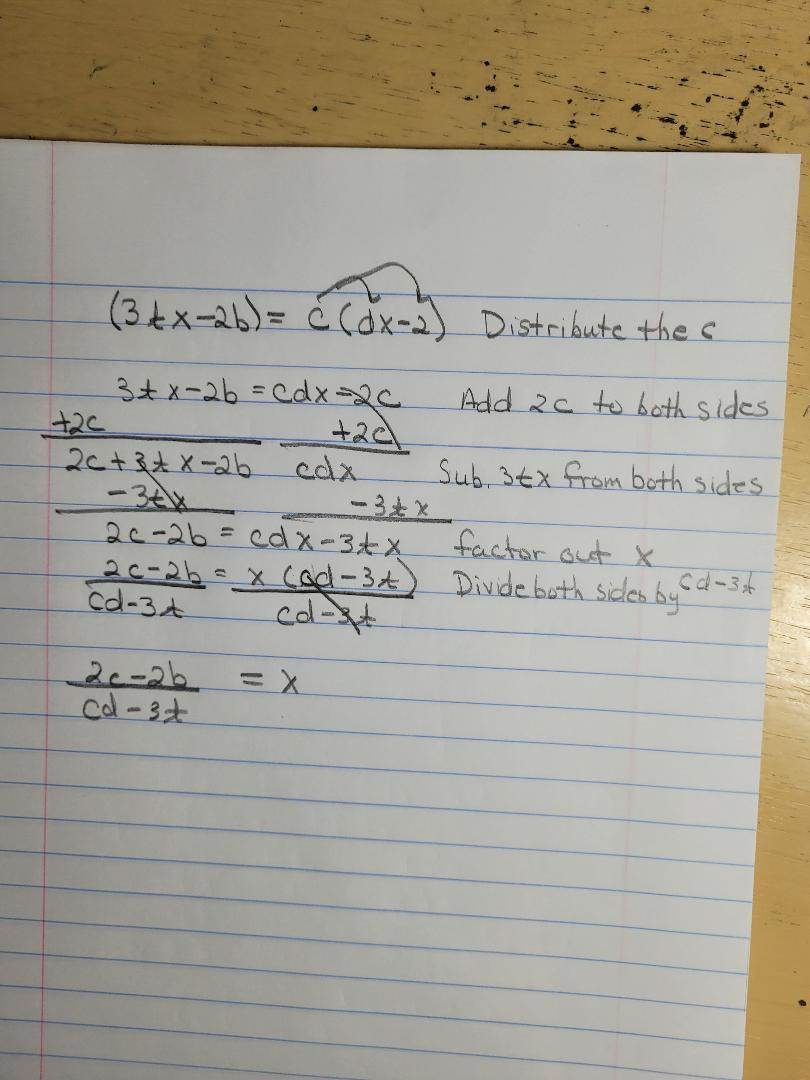 (3tx-2b) = c(dx-2) Distribute the c
3tx-2b = cdx-2c Add 2c to both sides
+2c +2c
2c+3tx-2b cdx Sub. 3tx from both sides
-3tx -3tx
2c-2b = cdx-3tx factor out x
2c-2b = x(cd-3t) Divide both sides by cd-3t
cd-3t cd-3t
2c-2b = x
cd-3t